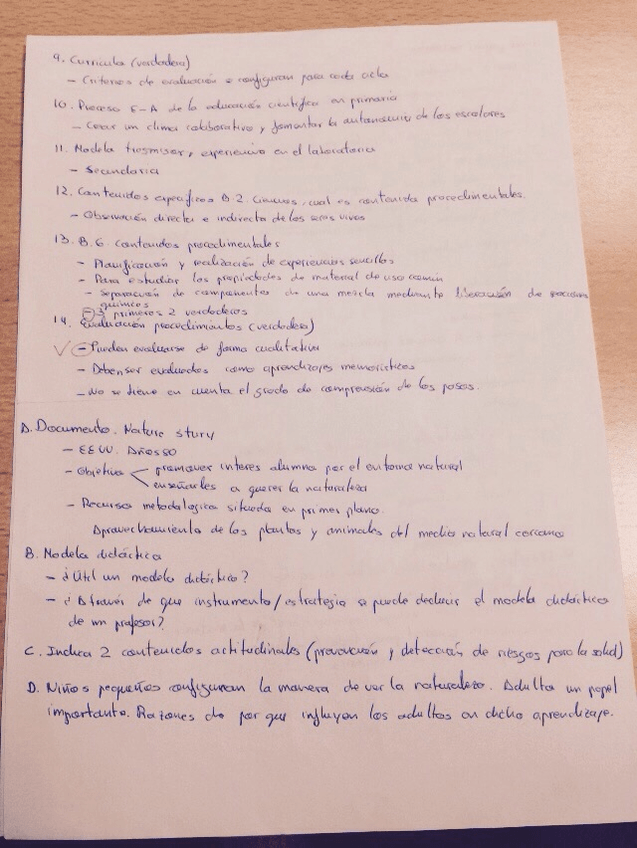 9. Curricula (verdadera)
- Criterios de evaluación se configuran para cada ciclo
10. Proceso E-A de la educación científica en primaria
- Crear un clima colaborativo y fomentar la autonomía de los escolares
11. Modelo trasmisor y experiencia en el laboratorio
- Secundaria
12. Contenidos específicos B-2. Cuál es contenido procedimentales.
- Observación directa e indirecta de los seres vivos
13. B.6. contenidos procedimentales
- Planificación y realización de experiencias sencillas
- Para estudiar las propiedades de material de uso común
- Separación de componentes de una mezcla mediante de
químicos
- 3 primeros 2 verdaderos
14. Evaluación procedimientos (verdadera)
✓ - Pueden evaluarse de forma cualitativa
- Deben ser evaluados como aprendizajes memorísticos
- No se tiene en cuenta el grado de comprensión de los pasos.
A. Documento. Nature stury
- EEUU. Años 50
- Objetivo < promover interes alumno por el entorno natural
enseñarles a querer la naturaleza
- Recurso metodologico situado en primer plano
Aprovechamiento de las plantas y animales del medio natural cercano
B. Modelo didáctico
- ¿Util un modelo didáctico?
- ¿A través de que instrumento/estrategia se puede deducir el modelo didáctico
de un profesor?
C. Indica 2 contenidos actitudinales (prevención y detección de riesgos para la salud)
D. Niños pequeños configuran la manera de ver la naturaleza. Adulto un papel
importante. Razones de por que influyen los adultos en dicho aprendizaje.